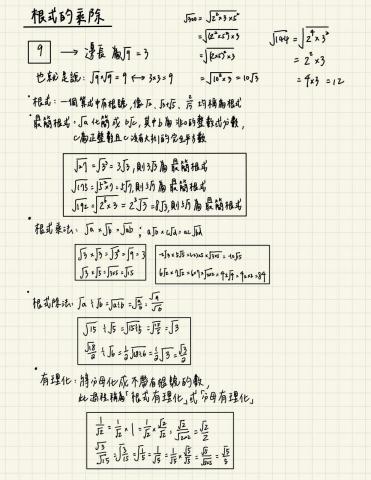 根式的乘除
9 → 邊長為√9 = 3
也就是說: √9×√9 = 9 ↔ 3×3 = 9
√300 = √2²×3×5²
= √(2²×5²)×3
= √(2×5)²×3
= √10²×3 = 10√3
√144 = √2⁴×3²
= 2²×3
= 4×3 = 12
根式: 一個算式中有根號,
均稱為根式
最簡根式: √a 化簡成 b√c, 其中 b 為非0的整數或分數,
c 為正整數且 c 沒有大於1的完全平方數
√27 = √3³ = 3√3, 則 3√3 為最簡根式
√175 = √5²×7 = 5√7, 則 5√7 為最簡根式
√192 = √2⁶×3 = 2³√3 = 8√3, 則 為最簡根式
根式乘法: √a × √b = √ab ;
√3 × √3 = √3² = √9 = 3
√3 × √5 = √3×5 = √15
根式除法: √a ÷ √b = √a÷b = √a/b = √a/√b
√15 ÷ √5 = √15÷5 = √15/5 = √3
√18/2 ÷ √6 = 1/2 √18÷6 = 1/2 √3 = √3/2
有理化: 將分母化成不帶有根號的數,
此過程稱為「根式有理化」或「分母有理化」
1/√2 = 1/√2 × 1 = 1/√2 × √2/√2 = √2/√2×2 = √2/2
√3/√15 = √3/15 = √1/5 = 1/√5 = 1/√5 × √5/√5 = √5/√5×5 = √5/5